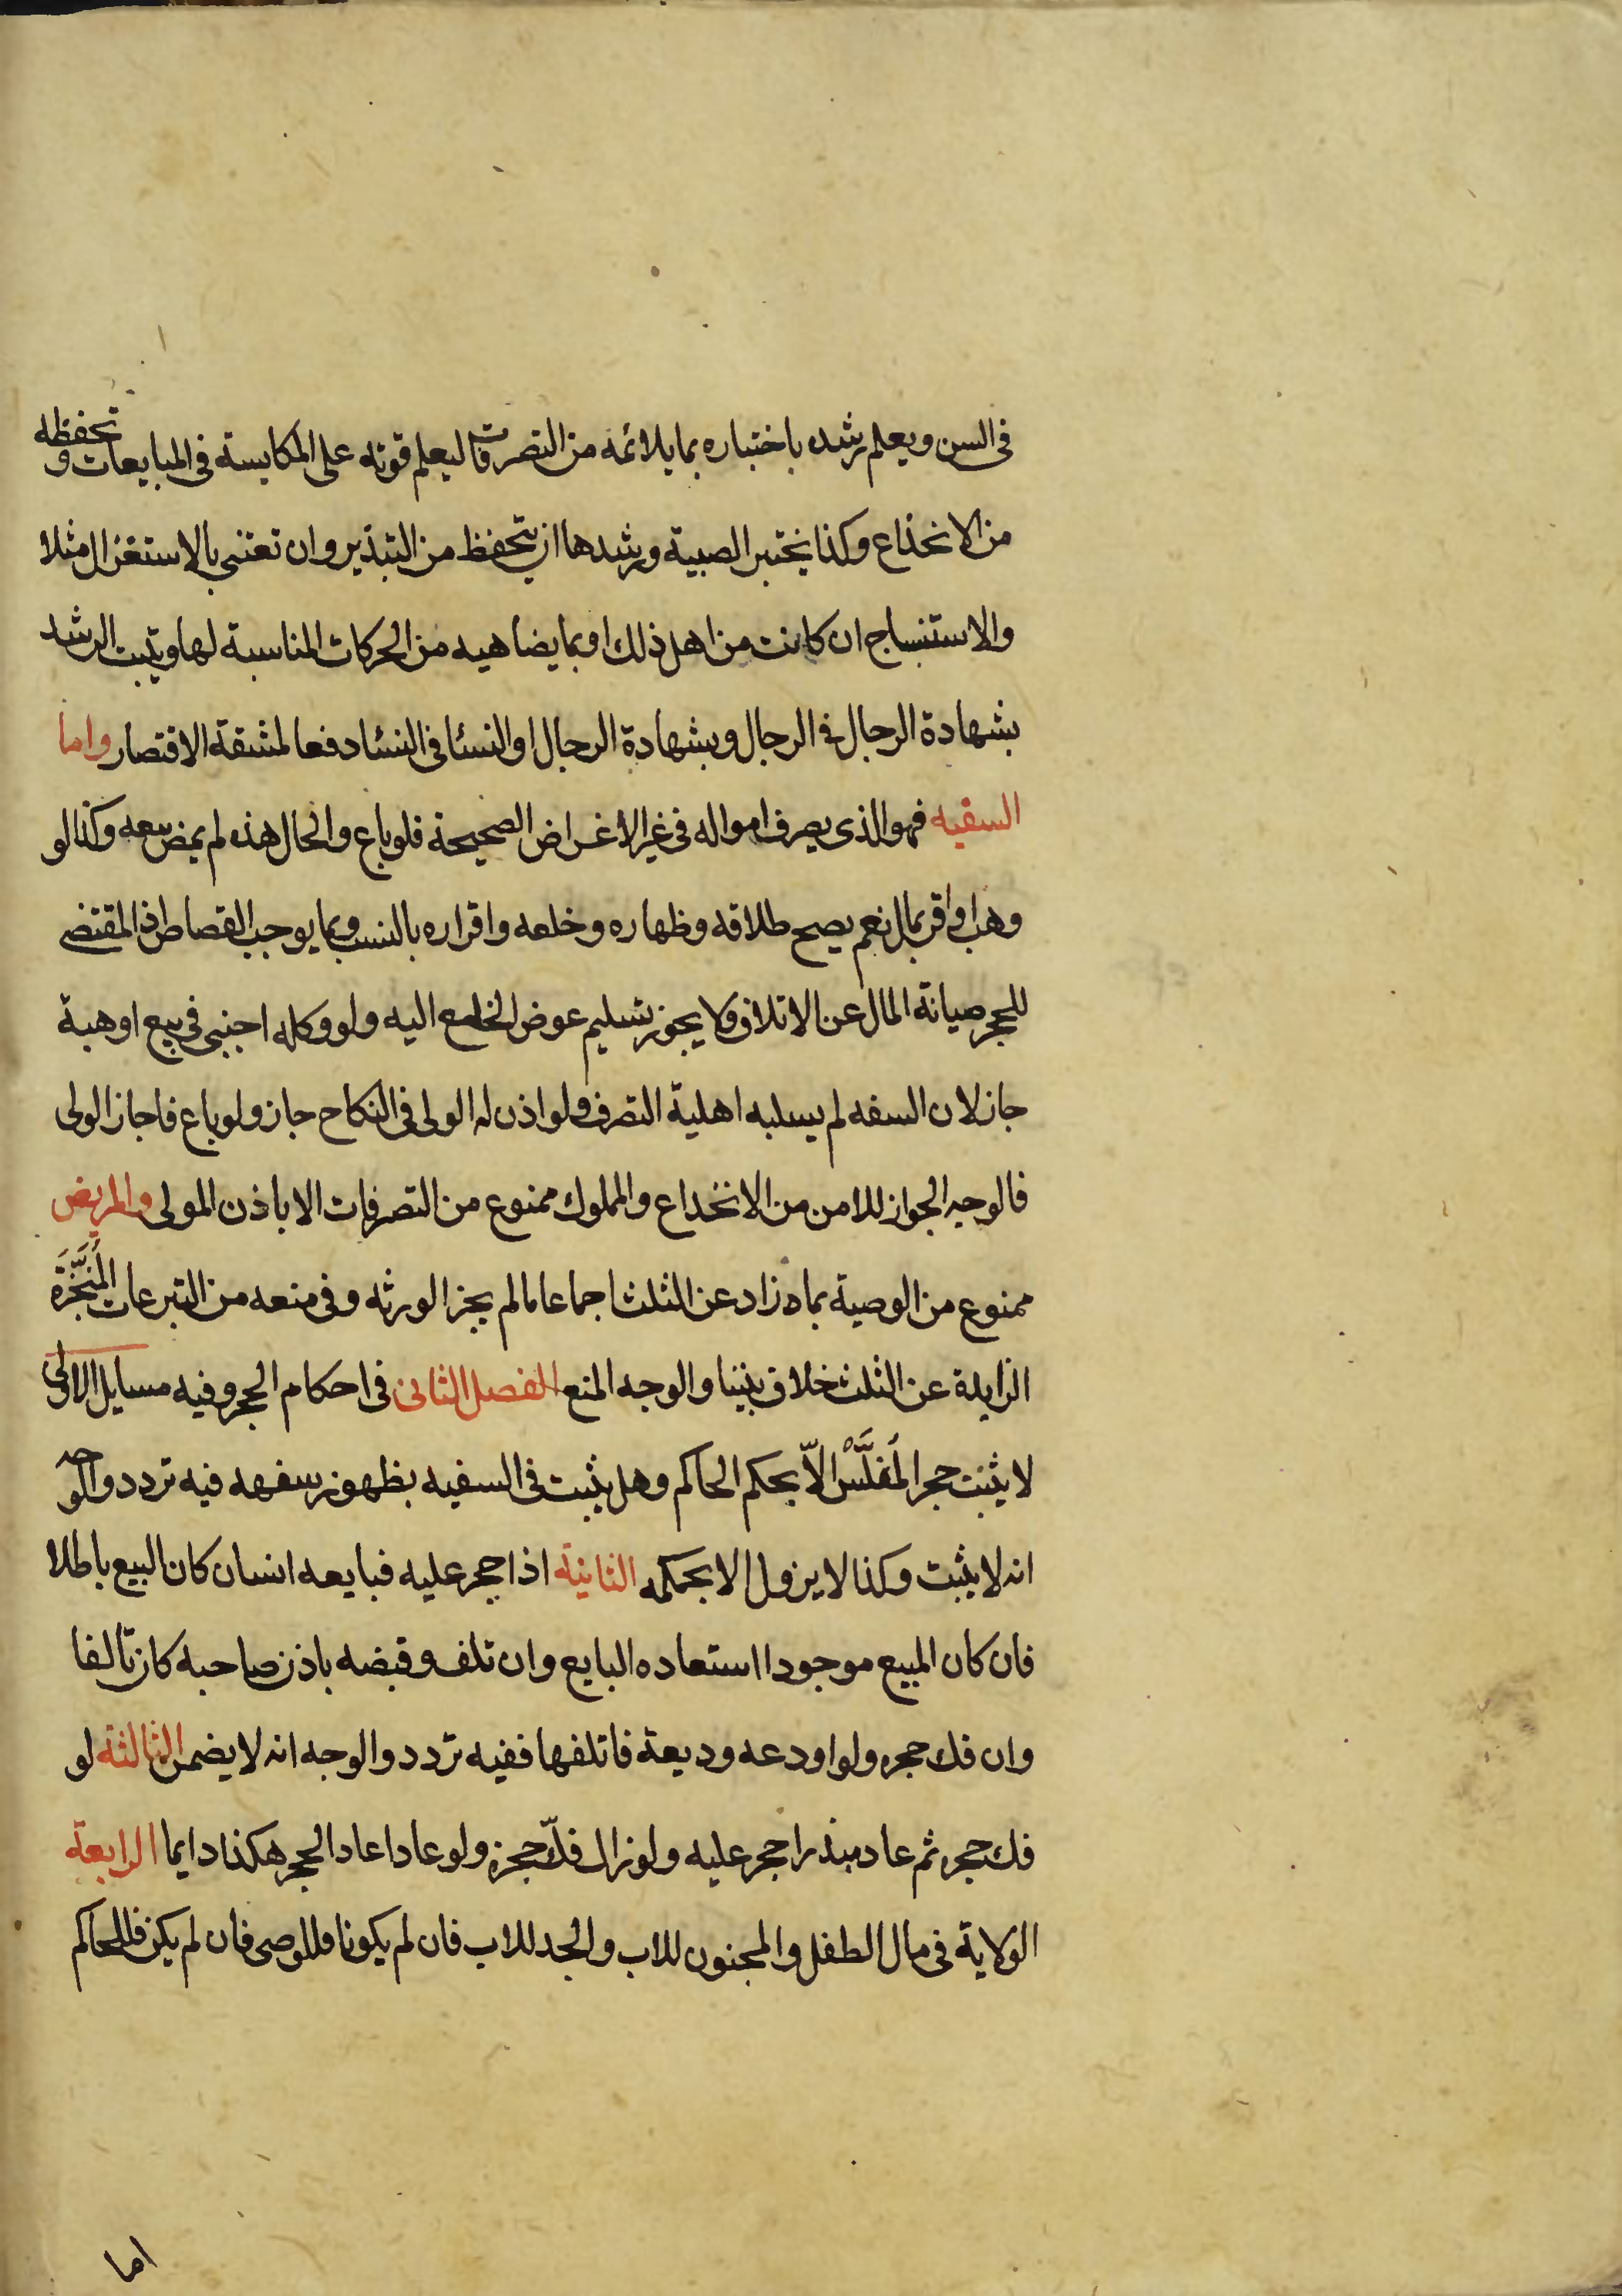 في السن ويعلم رشده باختباره بما يلائمه من التصرفات ليعلم قوته على المكايسة في المبايعات وتحفظه
من الانخذاع وكذا يختبر الصبية ورشدها ان يتحفظ من التبذير وان تعتنى بالاستغزال مثلا
والاستنساج ان كانت من اهل ذلك او بما يضاهيه من الحركات المناسبة لها ويثبت الرشد
بشهادة الرجال في الرجال وبشهادة الرجال او النسا في النسا دفعا لمشقة الاقتصار واما
السفيه فهو الذى يصرف امواله في غير الاغراض الصحيحة فلو باع والحال هذه لم يمض بيعه وكذا لو
وهب او اقر بمال نعم يصح طلاقه وظهاره وخلعه واقراره بالنسب وبما يوجب القصاص اذ المقتضى
للحجر صيانة المال عن الاتلاف ولا يجوز تسليم عوض الخلع اليه ولو وكله اجنبى في بيع او هبة
جاز لان السفه لم يسلبه اهلية التصرف ولو اذن له الولى في النكاح جاز ولو باع فاجاز الولى
فالوجه الجواز للامن من الانخداع والمملوك ممنوع من التصرفات الا باذن المولى والمريض
ممنوع من الوصية بما زاد عن الثلث اجماعا مالم يجز الورثه وفي منعه من التبرعات المُنَجَّزَة
الزايدة عن الثلث خلاف بيننا والوجه المنع الفصل الثانى في احكام الحجر وفيه مسايل الاولى
لا يثبت حجر المُفَلَّسْ الّا بحكم الحاكم وهل يثبت في السفيه بظهور سفهه فيه تردد والوجه
انه لا يثبت وكذا لا يزول الا بحكمه الثانية اذا حجر عليه فبايعه انسان كان البيع باطلا
فان كان المبيع موجودا استعاده البايع وان تلف وقبضه باذن صاحبه كان تالفا
وان فك حجره ولو اودعه وديعة فاتلفها ففيه تردد والوجه انه لا يضمن الثالثة لو
فك حجره ثم عاد مبذرا حجر عليه ولو زال فكّ حجره ولو عاد اعاد الحجر هكذا دايما الرابعة
الولاية في مال الطفل والمجنون للاب والجد للاب فان لم يكونا فللوصى فان لم يكن فللحاكم
اما